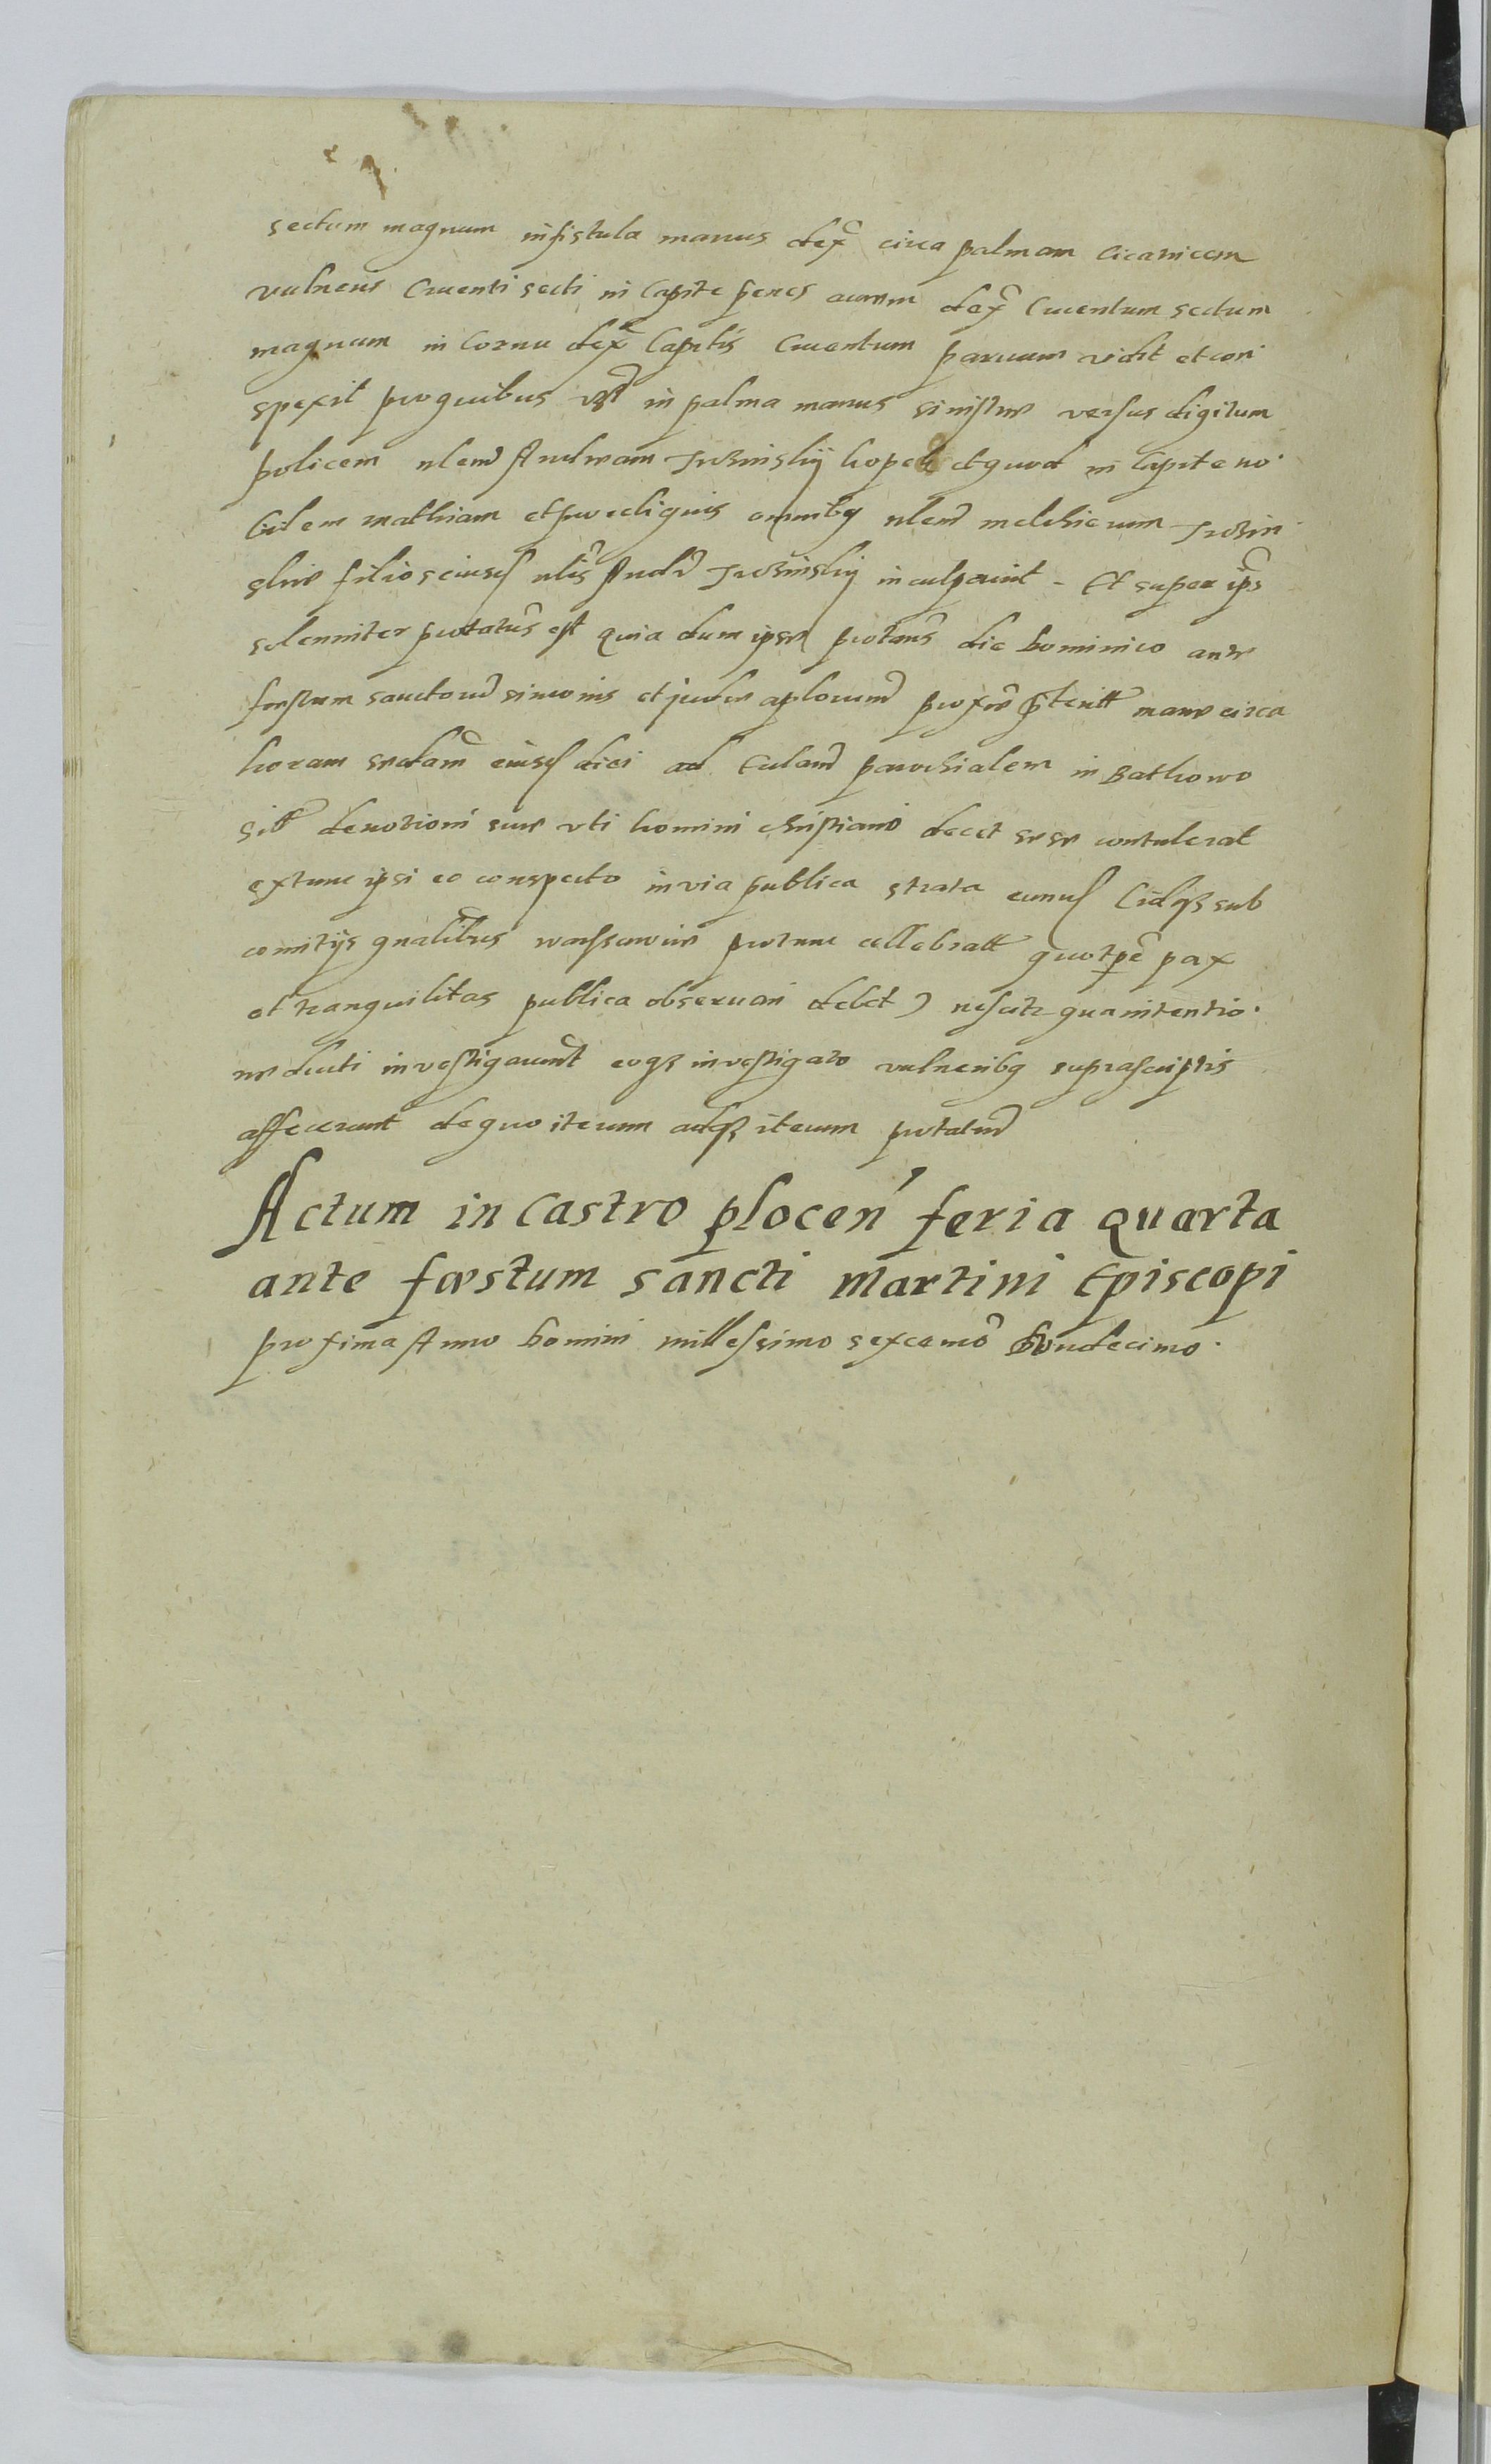 sectum magnum in fistula manus dex circa palmam Cicatricem
vulneris Cruenti secti in Capite penes aurem dex Cruentum sectum
magnum in Cornu dex Capitis Cruentum paruum vidit et con
spexit pro quibus in palma manus sinistræ versus digitum
policem Andream et quod in Capite no
bilem Mathiam et pro reliquis omnibq melchiorum
filios eiusd inculpauit - Et super ips
solenniter protatus est quia dum ipse protans die Dominico ante
fæstum sanctorum simonis et judæ aplorum proxe pterit mane circa
horam eiusd diei ad Eccland parochialem in Bathowo
sitt deuotioni suæ vti homini christiano decet sese contulerat
extunc ipsi eo conspecto in via publica strata eund Cidqz sub
comitijs gnalibus warssauiæ protunc cellebratt quo tpe pax
et tranquilitas publica obseruari debet) nescitr qua intentio
ne ducti inuestigauerunt eoqz inuestigato vulneribq suprascriptis
affecerunt de quo iterum adqz iterum protatur
Actum in Castro plocen feria quarta
ante fæstum sancti Martini Episcopi
proxima Anno Domini millessimo sexcemo undecimo.